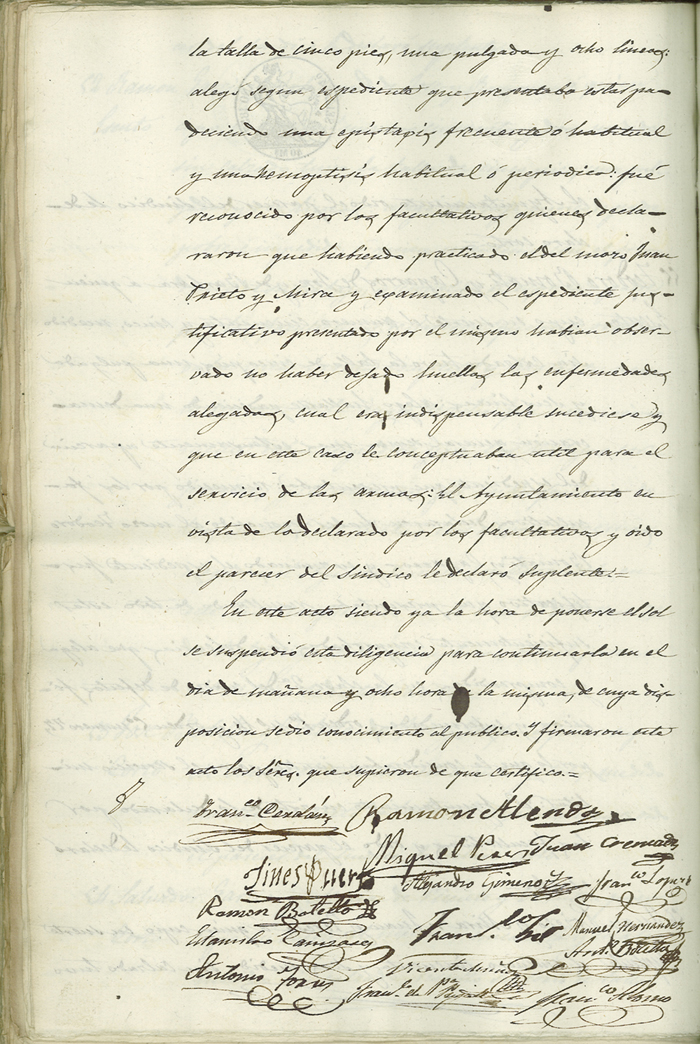 la talla de cinco pies, una pulgada y ocho lineas:
alegó segun espediente que presentaba estar pa-
deciendo una epistapis frecuente ó habitual
y una hemoptisis habitual ó periodica: fué
reconocido por los facultativos quienes decla-
raron que habiendo practicado el del mozo Juan
Prieto y Mira y examinado el espediente jus-
tificativo presentado por el mismo habian obser-
vado no haber dejado huellas las enfermedades
alegadas, cual era indispensable sucediese y
que en este caso le conceptuaban util para el
servicio de las armas: El Ayuntamiento en
vista de lo declarado por los facultativos y oido
el parecer del Sindico le declaró suplente.=
En este acto siendo ya la hora de ponerse el sol
se suspendió esta diligencia para continuarla en el
dia de mañana y ocho hora de la misma, de cuya dis-
posicion se dio conocimiento al publico. Y firmaron este
acto los Sres. que supieron de que certifico.=
Franco. Cerdán Ramon Alenda
Miguel Perez Juan Cremades
Gines Puerto Alejandro Gimeno Franco. Lopez
Ramon Botella
Estanislao Franco. Gil Manuel Hernandez
Anto. Botella
Antonio Vicente Muñoz
Franco. de Pa. Franco. Alomo